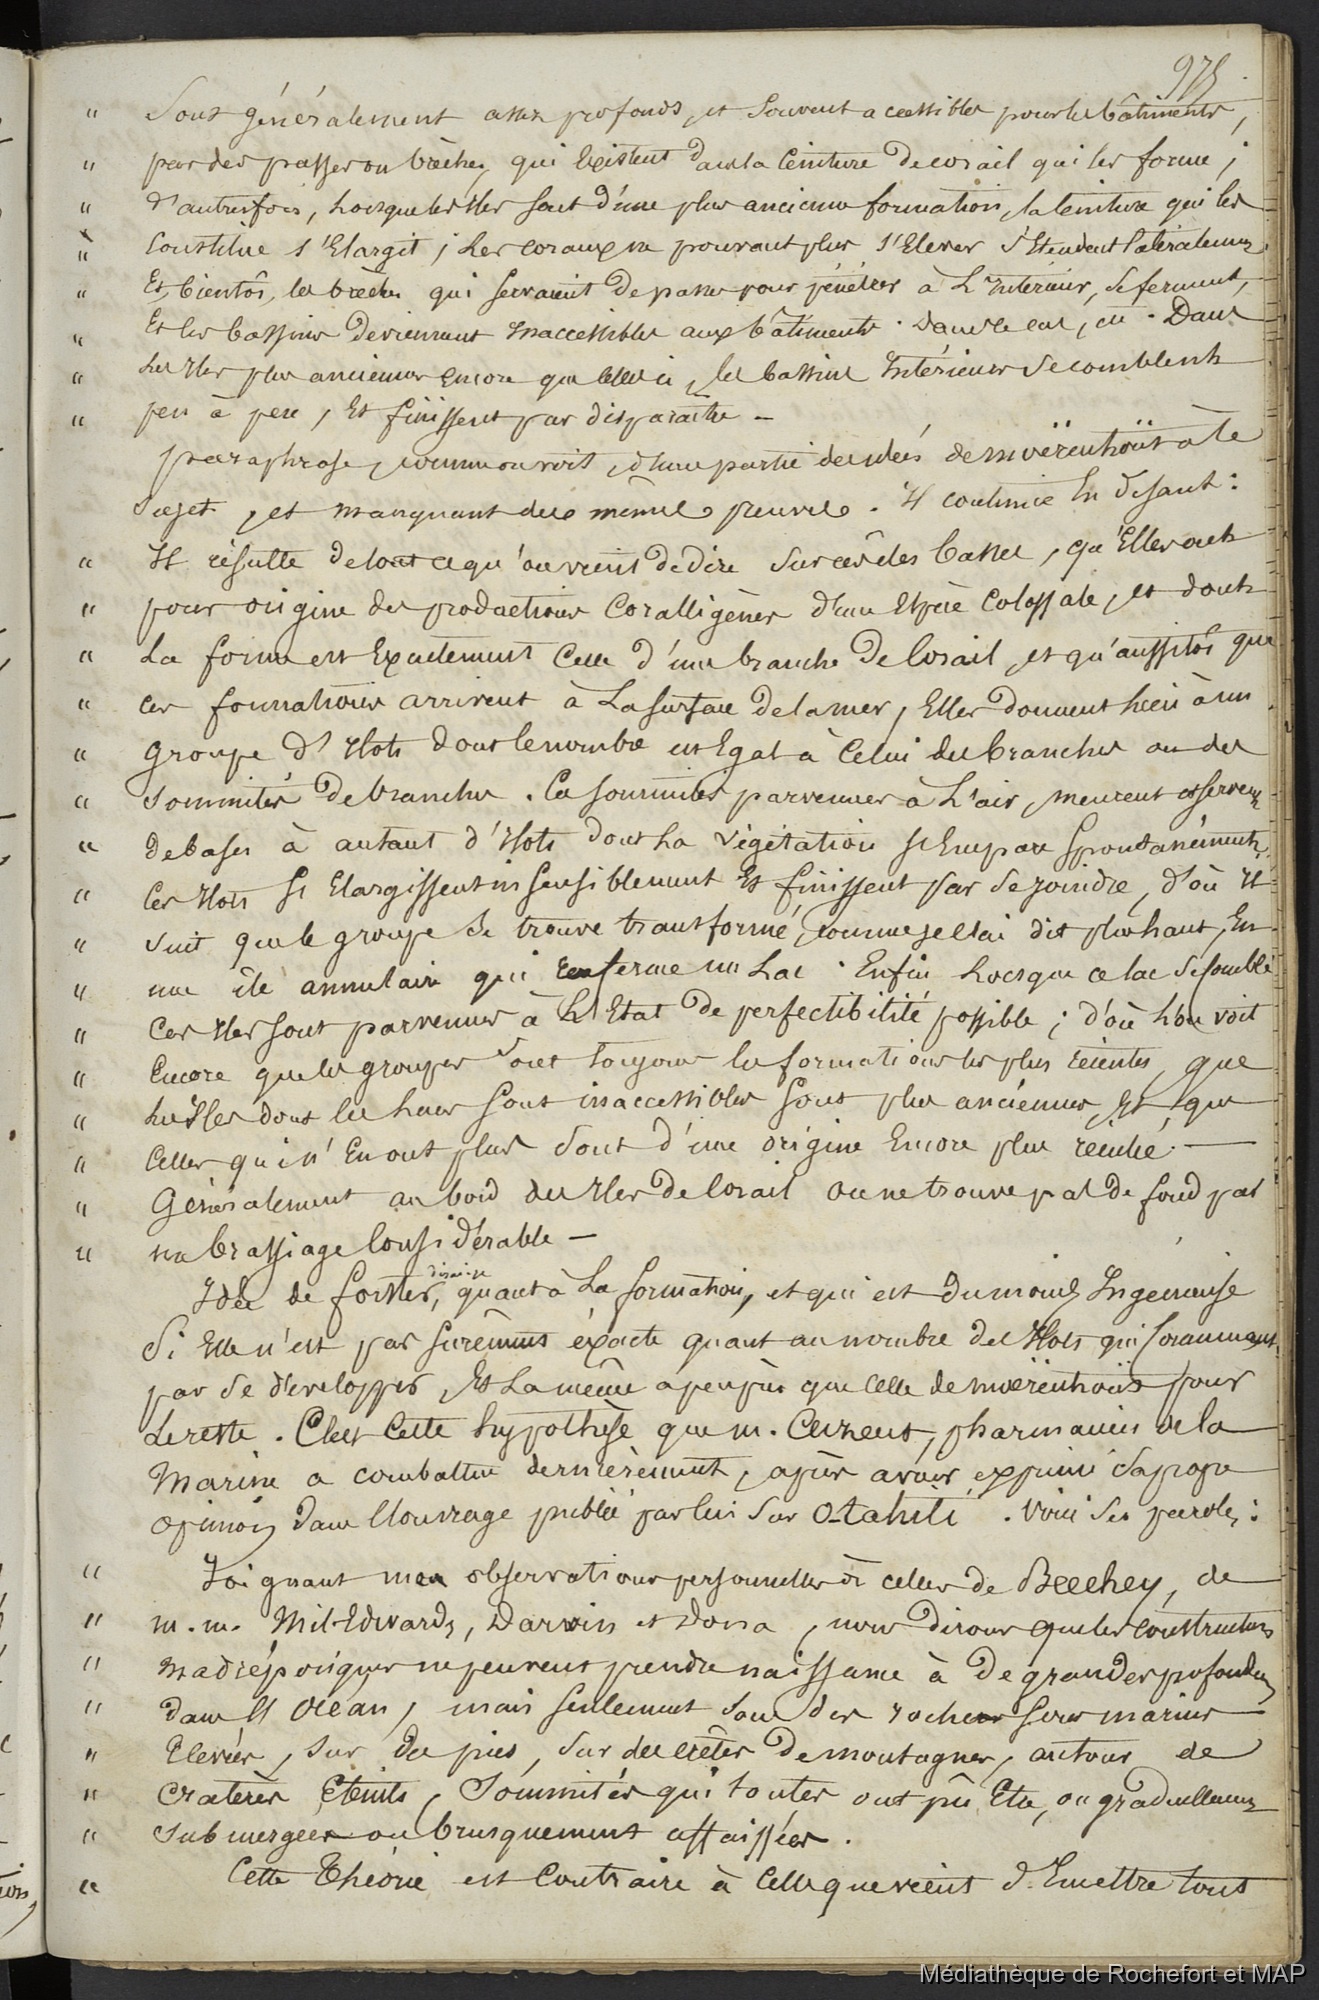 975
" Sont généralement assez profonds, et souvent accessibles pour les bâtiments,
" par des passes ou brèches qui existent dans la ceinture de corail qui les forme ;
" d'autresfois, lorsque les Iles sont d'une plus ancienne formation, la ceinture qui les
" constitue s'Elargit ; les coraux ne pouvant plus s'Elever s'Etendent latéralement
" Et bientôt, les brèches qui servaient de passes pour pénétrer à L'Intérieur, se ferment,
" Et les bassins deviennent Inaccessibles aux bâtiments. Dans le cas, où. Dans
" les Iles plus anciennes encore que celles ci, les bassins Intérieurs se comblent
" peu à peu, Et finissent par disparaître —
paraphrase, comme on voit, d'une partie des idées de Moërenhoüt à ce
sujet, et manquant des mêmes preuves. Il continue En disant :
" Il résulte de tout ce qu'on vient de dire sur ces Iles basses, qu'Elles ont
" pour origine des productions Coralligènes d'une Espèce Colossale, et dont
" La forme est Exactement Celle d'une branche de Corail, et qu'aussitôt que
" ces formations arrivent à La surface de la mer, Elles donnent lieu à un
" groupe d'Ilots dont le nombre est Egal à Celui des branches ou des
" sommités de branches. Ces sommités parvenues à L'air, meurent et servent
" de bases à autant d'Ilots dont La végétation s'Empare Spontanément,
" Ces Ilots s'Elargissent insensiblement Et finissent par se joindre, d'où Il
" suit que le groupe se trouve transformé, comme je l'ai dit plus haut, En
" une île annulaire qui renferme un Lac. Enfin Lorsque ce lac se comble
" Ces Iles sont parvenues à L'Etat de perfectibilité possible ; d'où L'on voit
" Encore que les groupes sont toujours les formations les plus récentes, que
" les Iles dont les lacs sont inaccessibles sont plus anciennes, Et que
" Celles qui n'En ont plus sont d'une origine Encore plus reculée. —
" Généralement au bord des Iles de Corail on ne trouve pas de fond par
" un brassiage Considérable —
Idée de Forster, quant à La formation, et qui est du moins Ingénieuse
Si Elle n'est pas surement éxacte quant au nombre des Ilots qui
par se développer, Et La même apeuprès que Celle de Moërenhoüt pour
Le reste. C'est Cette hypothèse que M. Cuzent, pharmacien de la
Marine a combattue dernièrement, après avoir exprimé sa propre
opinion dans L'ouvrage publié par lui sur O-tahiti. Voici ses paroles :
" Joignant mes observations personnelles à celles de Beechey, de
" M.M. Mil-Edwards, Darwin et Dana, nous dirons que les constructions
" madréporiques ne peuvent prendre naissance à de grandes profondeurs
" dans L'Océan, mais seulement sur des rochers sous marins
" Elevés, sur des pics, sur des crêtes de montagnes, autour de
" cratères Eteints, Sommités qui toutes ont pu Etre, ou graduellement
" submergées ou brusquement affaissées.
" Cette Théorie est Contraire à Celle que vient d'Emettre tout
Médiathèque de Rochefort et MAP